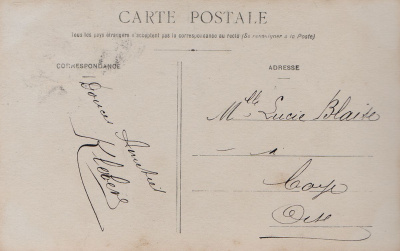 CARTE POSTALE
Tous les pays étrangers n'acceptent pas la correspondance au recto (Se renseigner à la Poste)
CORRESPONDANCE
ADRESSE
Douces
Kléber
Mlle Lucie Blaise
à
Coye
Oise